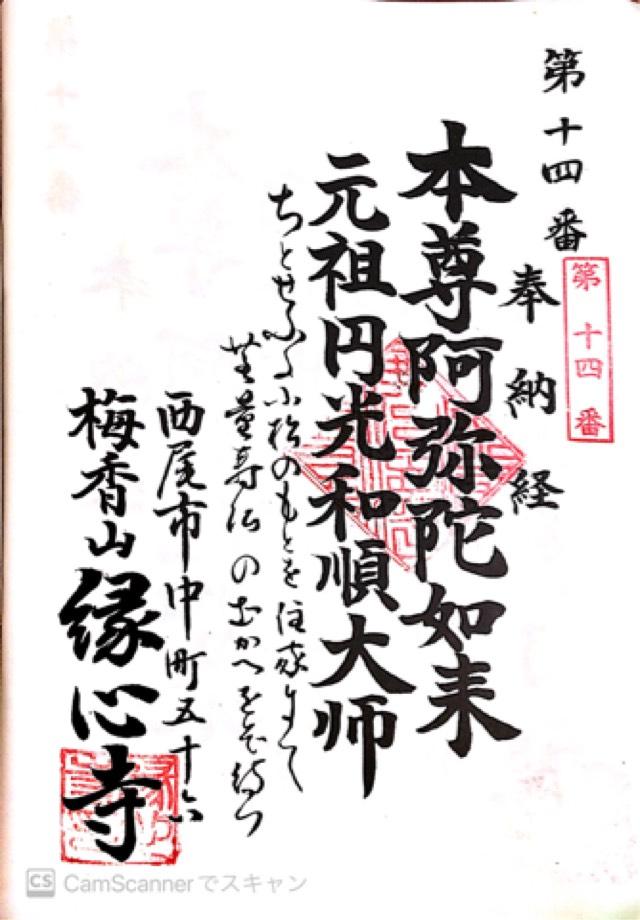 第十四番
第十四番
奉納経
本尊阿弥陀如来
元祖円光和順大師
ちとせふる小松のもとを住家にて
無量寿仏のむかへをぞ待つ
西尾市中町五十六
梅香山縁心寺
CS CamScannerでスキャン